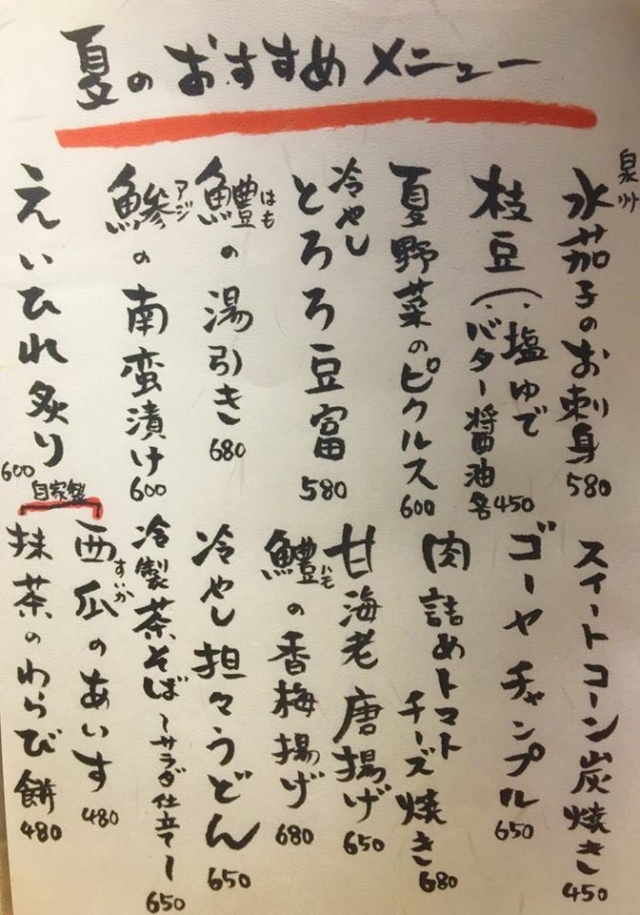 夏のおすすめメニュー
泉州
水茄子のお刺身 580
枝豆(・塩ゆで
・バター醤油 各450
夏野菜のピクルス 600
冷やし
とろろ豆富 580
鱧の湯引き 680
はも
鰺の南蛮漬け 600
アジ
えいひれ炙り 600
スイートコーン炭焼き 450
ゴーヤチャンプル 650
肉詰めトマト
チーズ焼き 680
甘海老唐揚げ 650
鱧の香梅揚げ 680
ハモ
冷やし担々うどん 650
冷製茶そば〜サラダ仕立て〜 650
自家製
西瓜のあいす 480
すいか
抹茶のわらび餅 480